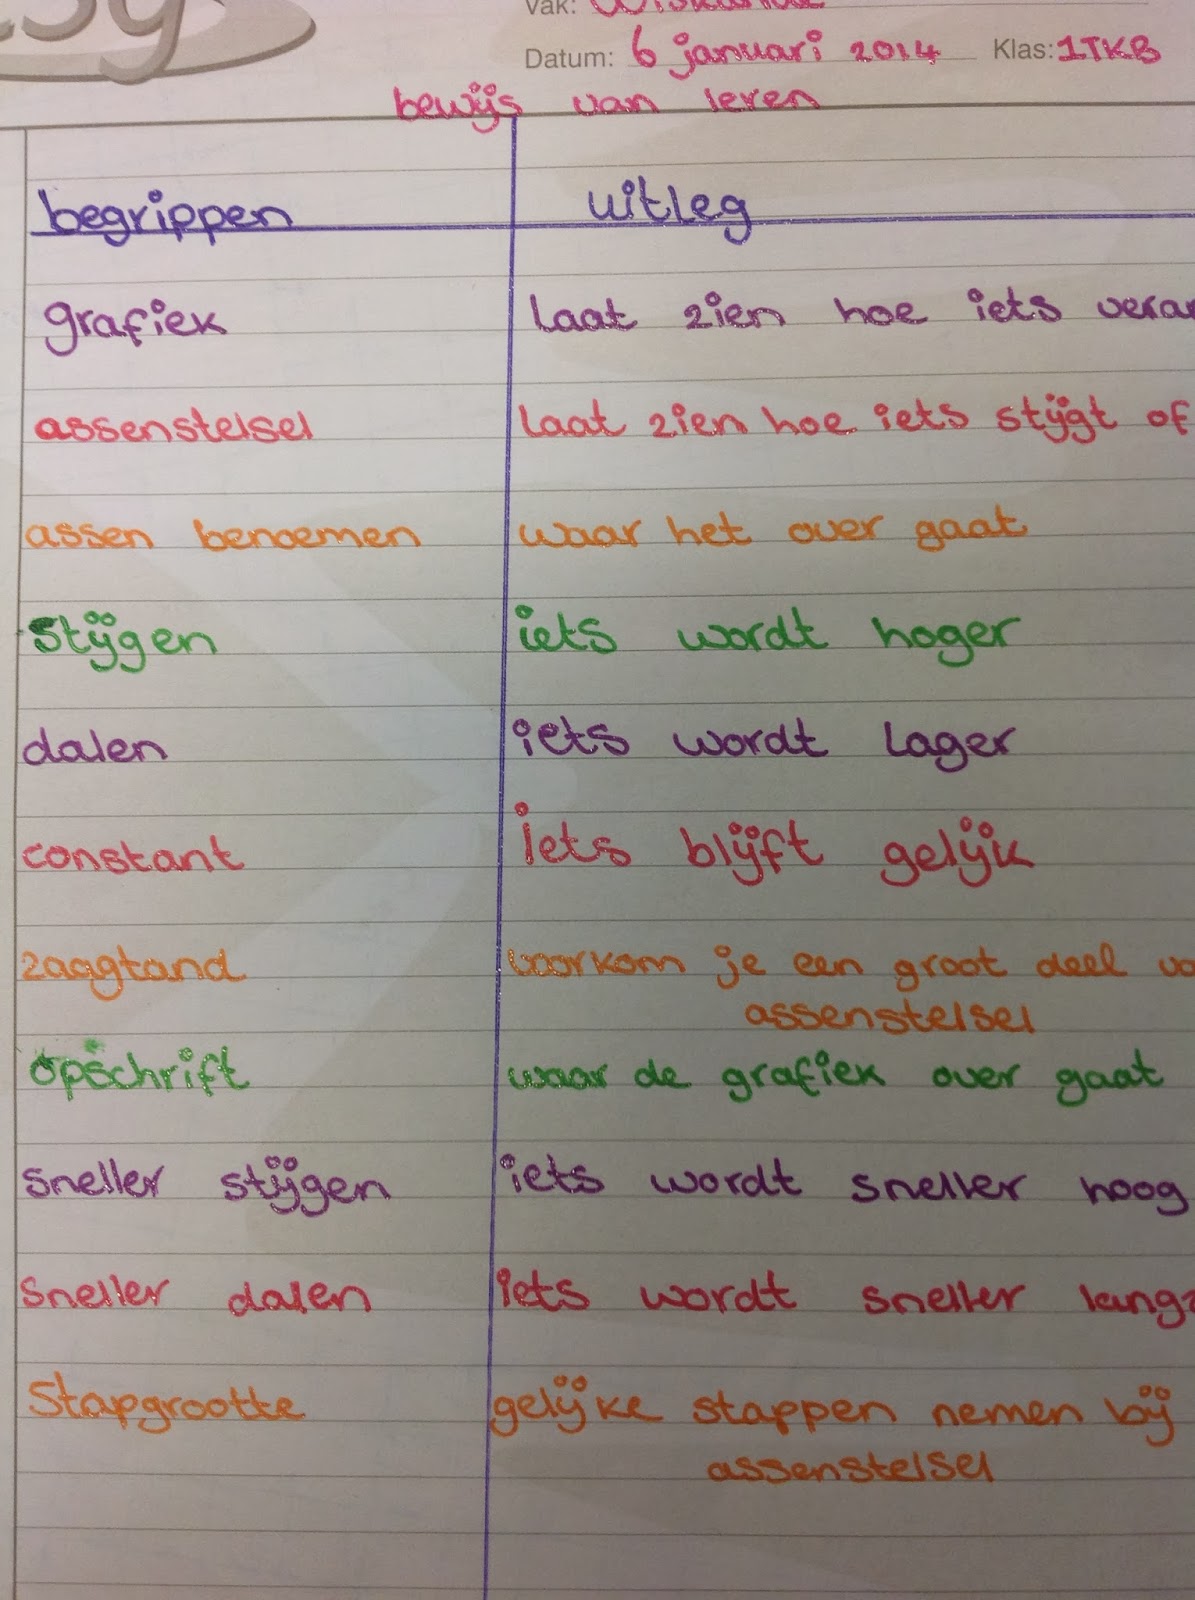 Vak: Wiskunde
Datum: 6 januari 2014 Klas: 1TKB
bewijs van leren
begrippen uitleg
grafiek laat zien hoe iets
assenstelsel laat zien hoe iets stijgt of
assen benoemen waar het over gaat
stijgen iets wordt hoger
dalen iets wordt lager
constant iets blijft gelijk
zaagtand voorkom je een groot deel
assenstelsel
opschrift waar de grafiek over gaat
sneller stijgen iets wordt sneller hoog
sneller dalen iets wordt sneller
Stapgrootte gelijke stappen nemen bij
assenstelsel